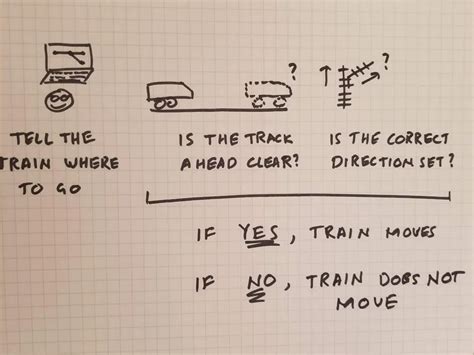 ?
?
TELL THE
TRAIN WHERE
TO GO
IS THE TRACK
AHEAD CLEAR?
IS THE CORRECT
DIRECTION SET?
IF YES, TRAIN MOVES
IF NO, TRAIN DOES NOT
MOVE